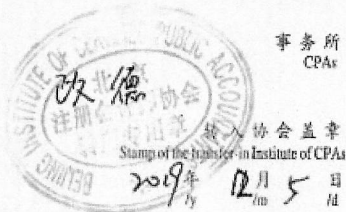 事务所
CPAs
BEIJING INSTITUTE OF CERTIFIED PUBLIC ACCOUNTANTS
北京
注册会计师协会
转入协会盖章
Stamp of the transfer-in Institute of CPAs
2019年 12月 5日
/y /m /d